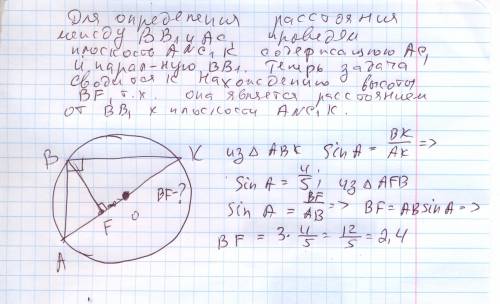 Для определения расстояния
между BB₁ и AC₁ проведём
плоскость ANC₁K содержащую AC₁
и парал-ную BB₁. Теперь задача
сводится к нахождению высоты
BF, т.к. она является расстоянием
от BB₁ к плоскости ANC₁K.
B K
BF-?
F O
A
из △ ABK Sin A = BK/AK =>
Sin A = 4/5; из △ AFB
Sin A = BF/AB => BF = AB sin A =>
BF = 3 · 4/5 = 12/5 = 2,4